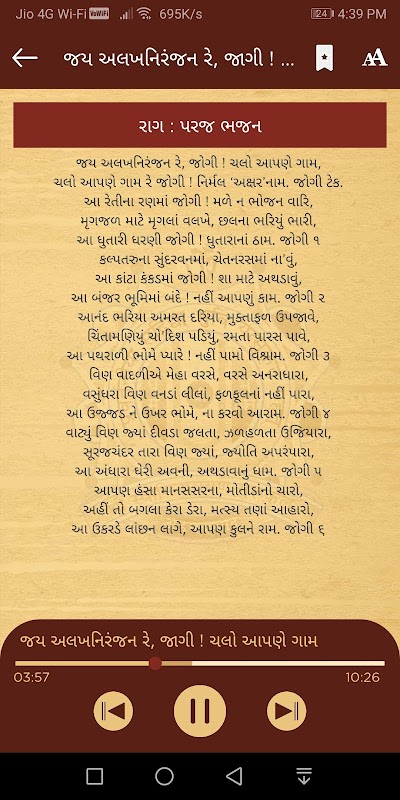 Jio 4G Wi-Fi VoWiFi 695K/s 24 4:39 PM
જય અલખનિરંજન રે, જાગી ! ... AA
રાગ : પરજ ભજન
જય અલખનિરંજન રે, જોગી ! ચલો આપણે ગામ,
ચલો આપણે ગામ રે જોગી ! નિર્મલ ‘અક્ષર’નામ. જોગી ટેક.
આ રેતીના રણમાં જોગી ! મળે ન ભોજન વારિ,
મૃગજળ માટે મૃગલાં વલખે, છલના ભરિયું ભારી,
આ ધુતારી ધરણી જોગી ! ધુતારાનાં ઠામ. જોગી ૧
કલ્પતરુના સુંદરવનમાં, ચેતનરસમાં ના'વું,
આ કાંટા કંકડમાં જોગી ! શા માટે અથડાવું,
આ બંજર ભૂમિમાં બંદે ! નહીં આપણું કામ. જોગી ૨
આનંદ ભરિયા અમરત દરિયા, મુક્તાફળ ઉપજાવે,
ચિંતામણિયું ચો'દિશ પડિયું, રમતા પારસ પાવે,
આ પથરાળી ભોમે પ્યારે ! નહીં પામો વિશ્રામ. જોગી ૩
વિણ વાદળીએ મેહા વરસે, વરસે અનરાધારા,
વસુંધરા વિણ વનડાં લીલાં, ફળફૂલનાં નહીં પારા,
આ ઉજ્જડ ને ઉખર ભોમે, ના કરવો આરામ. જોગી ૪
વાટ્યું વિણ જ્યાં દીવડા જલતા, ઝળહળતા ઉજિયારા,
સૂરજચંદર તારા વિણ જ્યાં, જ્યોતિ અપરંપારા,
આ અંધારા ઘેરી અવની, અથડાવાનું ધામ. જોગી ૫
આપણ હંસા માનસસરના, મોતીડાંનો ચારો,
અહીં તો બગલા કેરા ડેરા, મત્સ્ય તણાં આહારો,
આ ઉકરડે લાંછન લાગે, આપણ કુલને રામ. જોગી ૬
જય અલખનિરંજન રે, જાગી ! ચલો આપણે ગામ
03:57 10:26